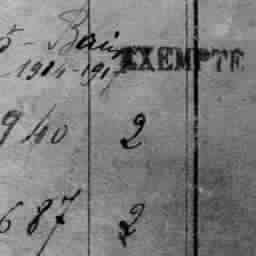 5 - Bain EXEMPTE
1914-1917
940 2
687 2